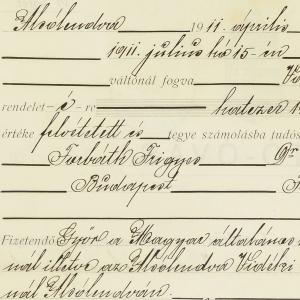 Alsólendva 1911. április
1911. julius hó 15-én
váltónál fogva
rendelet-é-re hatezer
értéke felvétetett és tegye számolásba tudós
Forbáth Frigyes
Budapest
Fizetendő Győr a Magyar általános
nál illetve az Alsólendva Vidéki
nál Alsólendván.